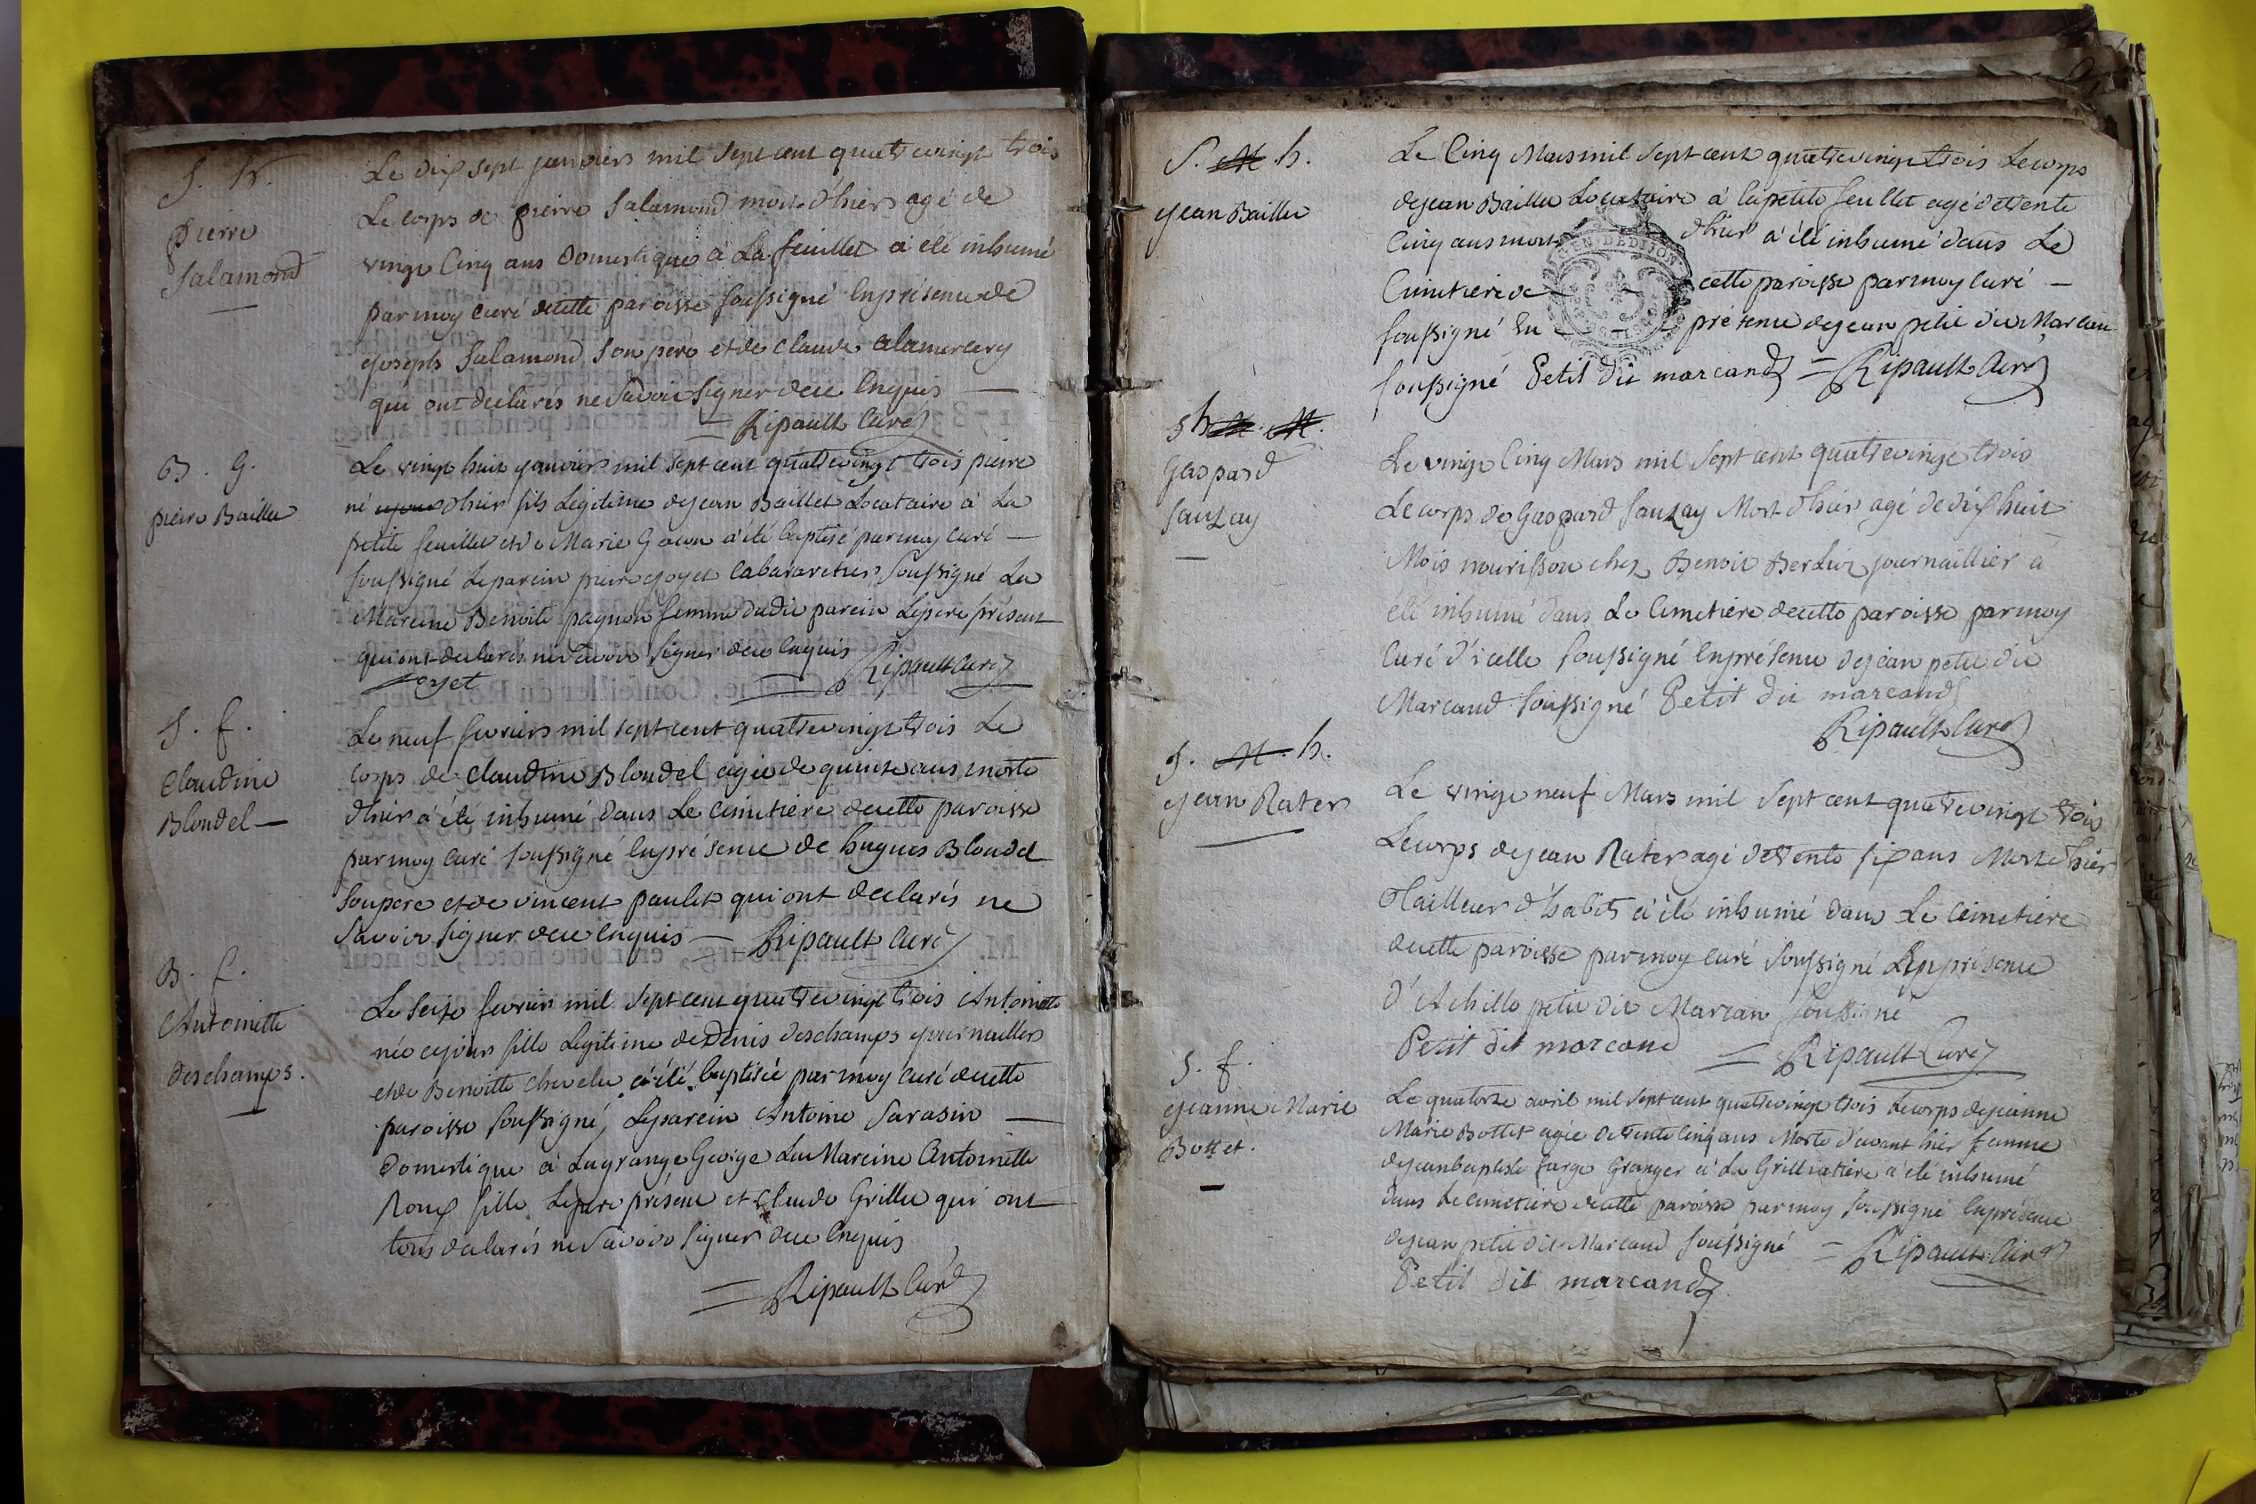 S. h.
pierre
Salamond
Le dix sept janviers mil sept cent quatrevingt trois
Le corps de pierre Salamond mort d'hier agé de
vingt cinq ans domestique à La feuillet a été inhumé
par moy curé decette paroisse soussigné Enprésence de
joseph Salamond son pere et de Claude alamercery
qui ont declarés ne savoir signer dece Enquis
Ripault Curé
B. G.
pierre Baillet
Le vingt huit janviers mil sept cent quatrevingt trois pierre
né d'hier fils Legitime dejean Baillet Locataire à La
petite feuillet et de Marie Gacon a été baptisé par moy curé
soussigné Leparein pierre joyet Cabararetier soussigné La
Mareine Benoite pagnon femme dudit parein Lepere présent
qui ont declarés ne savoir signer dece Enquis
joyet Ripault Curé
S. f.
Claudine
Blondel
Le neuf fevriers mil sept cent quatrevingt trois Le
corps de Claudine Blondel agée de quinze ans morte
d'hier a été inhumé dans Le cimetiere decette paroisse
par moy curé soussigné Enprésence de hugues Blondel
Son pere et de vincent paulet qui ont declarés ne
Savoir signer dece Enquis Ripault Curé
B. f.
Antoinette
deschamps.
Le seize fevrier mil sept cent quatrevingt trois Antoinette
née cejour fille Legitime de Denis deschamps journaillier
et de Benoitte chevelu a été baptisée par moy curé decette
paroisse soussigné, Leparein Antoine Sarasin
domestique à Lagrange George La Mareine Antoinette
Roux fille Lepere présent et Claude Grillet qui ont
tous declarés ne savoir signer dece Enquis
Ripault Curé
S. M h.
jean Baillet
Le Cinq Mars mil sept cent quatrevingt trois Lecorps
dejean Baillet Locataire à Lapetite feuillet agé detrente
Cinq ans mort d'hier a été inhumé dans Le
GEN. DE DIJON
Cimetiere de cette paroisse par moy Curé
soussigné En présence dejean petit dit Marcan
soussigné Petit dit marcand Ripault Curé
S h M. M.
Gaspard
Sauzay
Le vingt Cinq Mars mil sept cent quatrevingt trois
Le corps de Gaspard Sauzay Mort d'hier agé de dix huit
Mois nourisson chez Benoit Berliot journaillier a
été inhumé dans Le Cimetiere decette paroisse par moy
Curé d'icelle soussigné Enprésence dejean petit dit
Marcand soussigné Petit dit marcand
Ripault Curé
S. M. h.
jean Rater
Le vingt neuf Mars mil sept cent quatrevingt trois
Lecorps dejean Rater agé detrente six ans Mort d'hier
Tailleur d'habits a été inhumé dans Le Cimetiere
decette paroisse par moy curé soussigné Enprésence
d'Achille petit dit Marcan soussigné
Petit dit marcand Ripault Curé
S. f.
jeanne Marie
Bottet.
Le quatorze avril mil sept cent quatrevingt trois Lecorps dejeanne
Marie Bottet agée detrente Cinq ans Morte d'avant hier femme
dejeanbaptiste farge Granger à La Grilliatiere a été inhumé
dans Le cimetiere decette paroisse par moy soussigné Enprésence
dejean petit dit Marcand soussigné Ripault Curé
Petit dit marcand